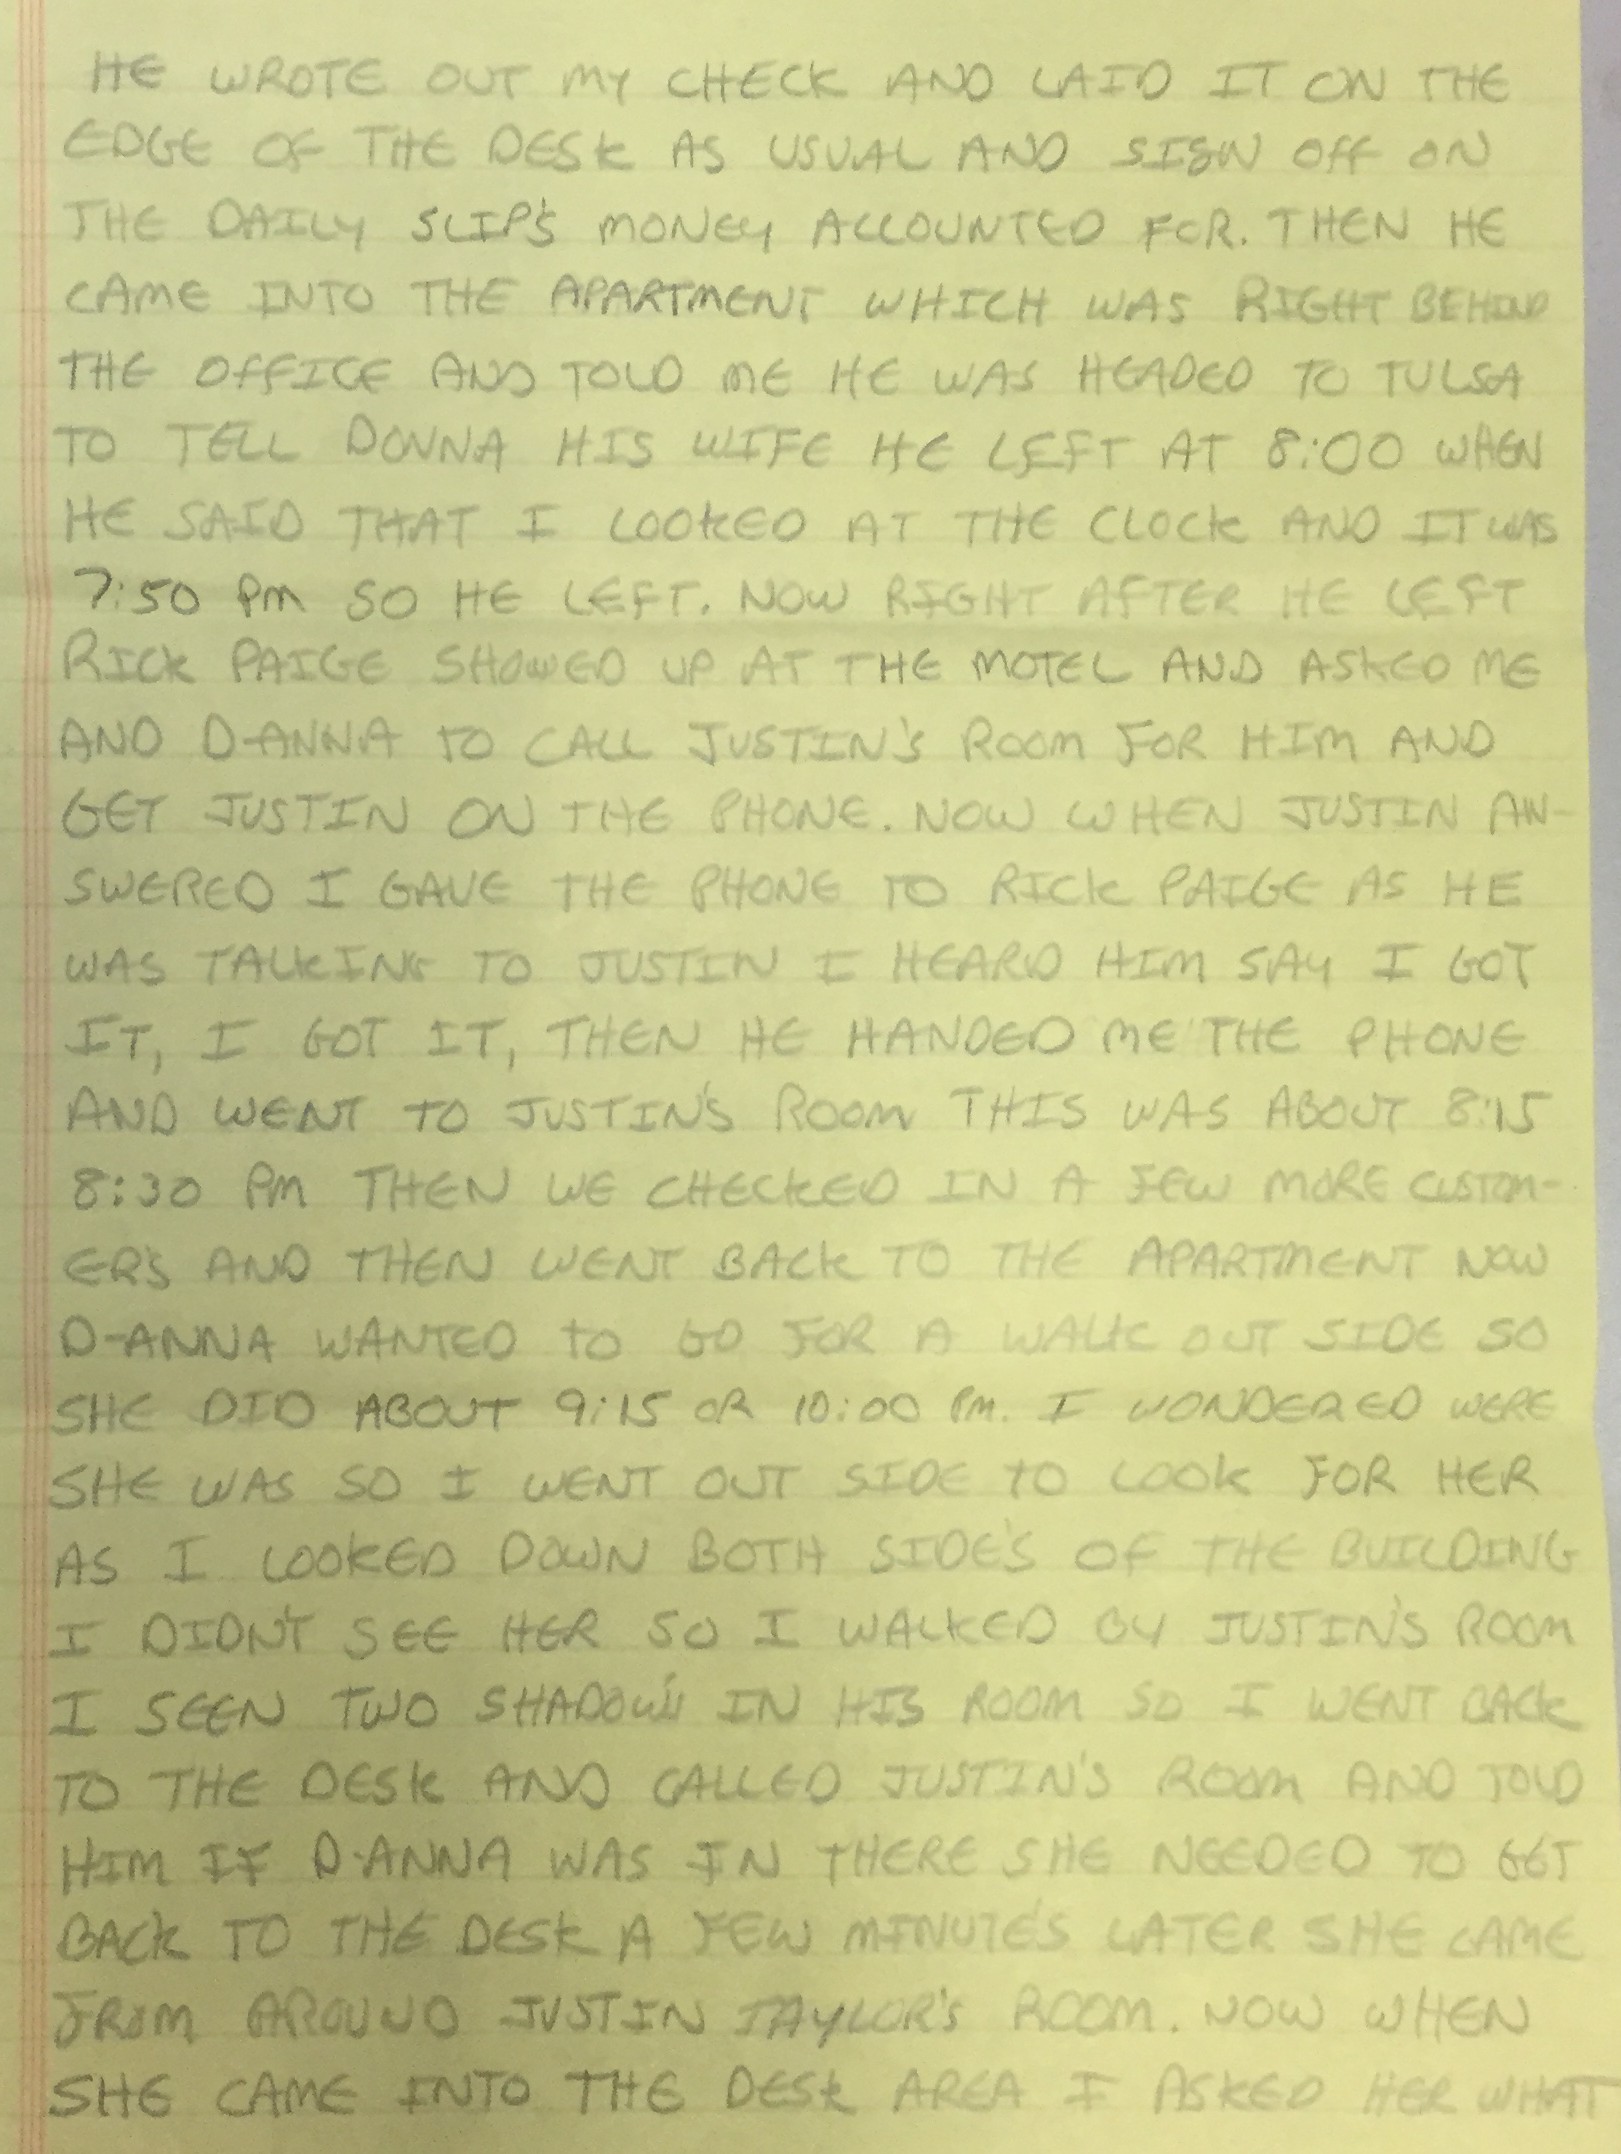 HE WROTE OUT MY CHECK AND LAID IT ON THE
EDGE OF THE DESK AS USUAL AND SIGN OFF ON
THE DAILY SLIP'S MONEY ACCOUNTED FOR. THEN HE
CAME INTO THE APARTMENT WHICH WAS RIGHT BEHIND
THE OFFICE AND TOLD ME HE WAS HEADED TO TULSA
TO TELL DONNA HIS WIFE HE LEFT AT 8:00 WHEN
HE SAID THAT I LOOKED AT THE CLOCK AND IT WAS
7:50 PM SO HE LEFT. NOW RIGHT AFTER HE LEFT
RICK PAIGE SHOWED UP AT THE MOTEL AND ASKED ME
AND D-ANNA TO CALL JUSTIN'S ROOM FOR HIM AND
GET JUSTIN ON THE PHONE. NOW WHEN JUSTIN AN-
SWERED I GAVE THE PHONE TO RICK PAIGE AS HE
WAS TALKING TO JUSTIN I HEARD HIM SAY I GOT
IT, I GOT IT, THEN HE HANDED ME THE PHONE
AND WENT TO JUSTIN'S ROOM THIS WAS ABOUT 8:15
8:30 PM THEN WE CHECKED IN A FEW MORE CUSTOM-
ER'S AND THEN WENT BACK TO THE APARTMENT NOW
D-ANNA WANTED TO GO FOR A WALK OUT SIDE SO
SHE DID ABOUT 9:15 OR 10:00 PM. I WONDERED WERE
SHE WAS SO I WENT OUT SIDE TO LOOK FOR HER
AS I LOOKED DOWN BOTH SIDE'S OF THE BUILDING
I DIDN'T SEE HER SO I WALKED BY JUSTIN'S ROOM
I SEEN TWO SHADOW'S IN HIS ROOM SO I WENT BACK
TO THE DESK AND CALLED JUSTIN'S ROOM AND TOLD
HIM IF D-ANNA WAS IN THERE SHE NEEDED TO GET
BACK TO THE DESK A FEW MINUTE'S LATER SHE CAME
FROM AROUND JUSTIN TAYLOR'S ROOM. NOW WHEN
SHE CAME INTO THE DESK AREA I ASKED HER WHAT